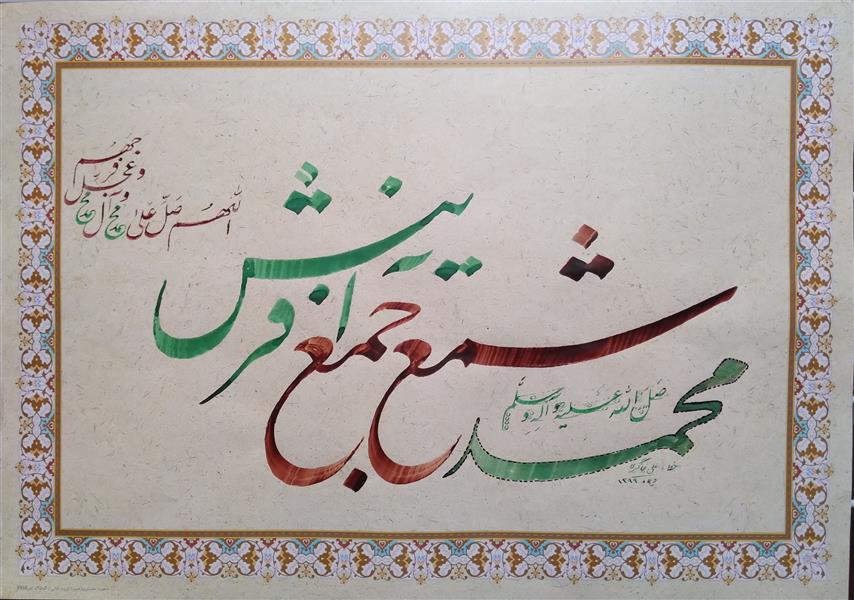 محمد
صلی الله علیه و آله وسلم
شمع جمع
آفرینش
اللهم صل علی محمد و آل محمد
و عجل فرجهم
خط: علی
۱۳۹۹